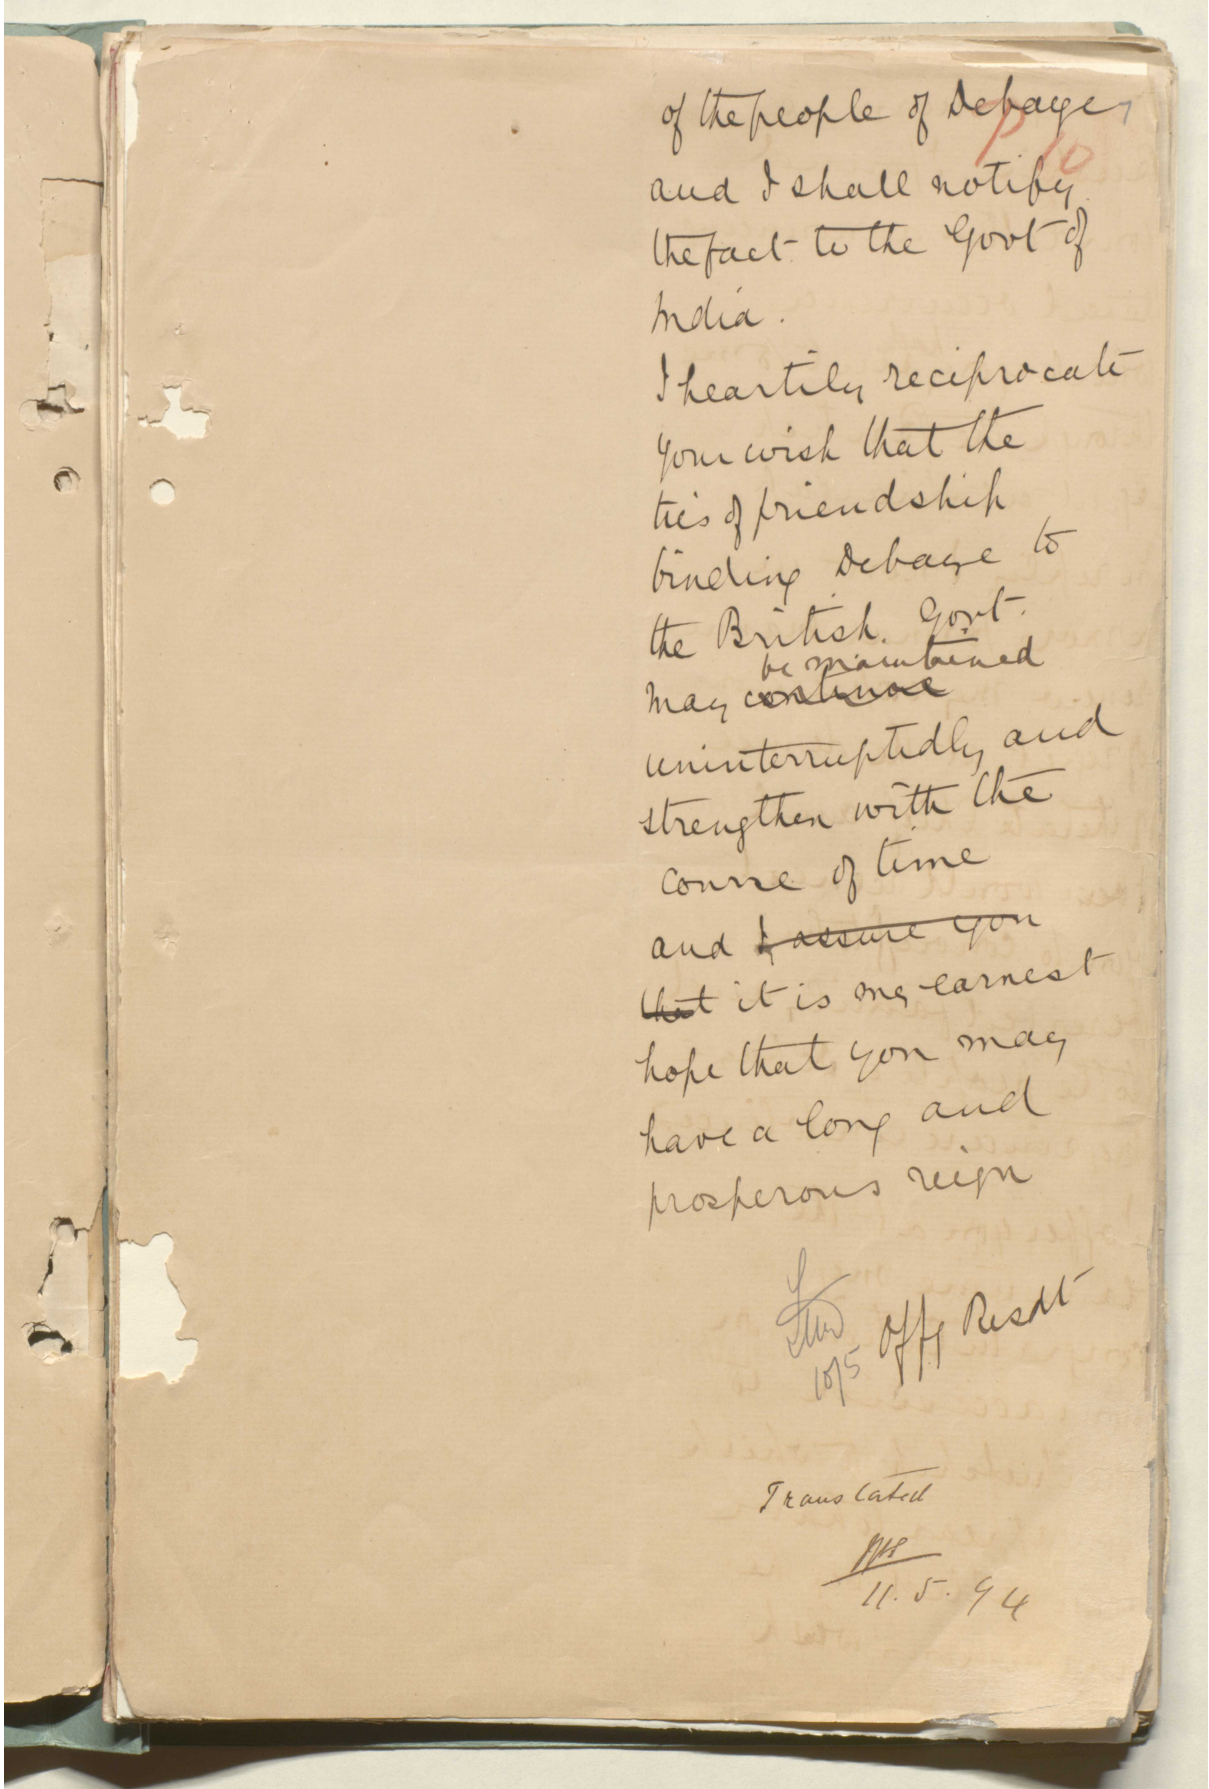 of the people of Debaye,
p 10
and I shall notify
the fact to the Govt of
India.
I heartily reciprocate
your wish that the
ties of friendship
binding Debaye to
the British. Govt.
be maintained
may continue
uninterruptedly and
strengthen with the
course of time
and I assure you
that it is my earnest
hope that you may
have a long and
prosperous reign
10/5 Offg Resdt
Translated
11.5.94